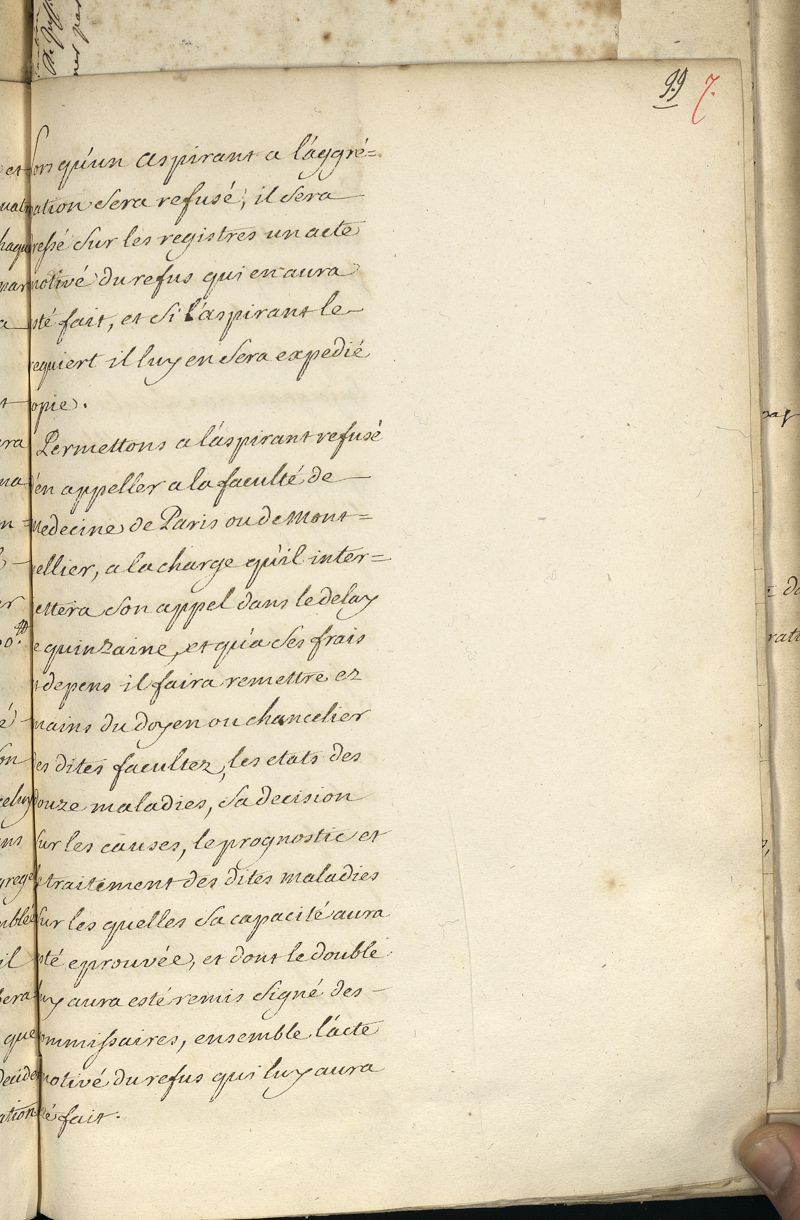 99 7.
Lors qu'un aspirant a l'aggré=
gation sera refusé, il sera
dressé sur les registres un acte
motivé du refus qui en aura
esté fait, et si l'aspirant le
requiert il luy en sera expedié
copie.
Permettons a l'aspirant refusé
d'en appeller a la faculté de
medecine de Paris ou de Mont=
pellier, a la charge qu'il inter=
jettera son appel dans le delay
de quinzaine, et qu'a ses frais
et depens il faira remettre ez
mains du doyen ou chancelier
des dites facultez, les etats des
douze maladies, sa decision
sur les causes, le prognostic et
le traitement des dites maladies
sur les quelles sa capacité aura
esté eprouvée, et dont le double
luy aura esté remis signé des
commissaires, ensemble l'acte
motivé du refus qui luy aura
esté fait.